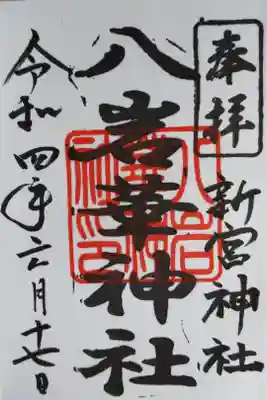 奉拝
新宮神社
八岩華神社
令和四年六月十七日